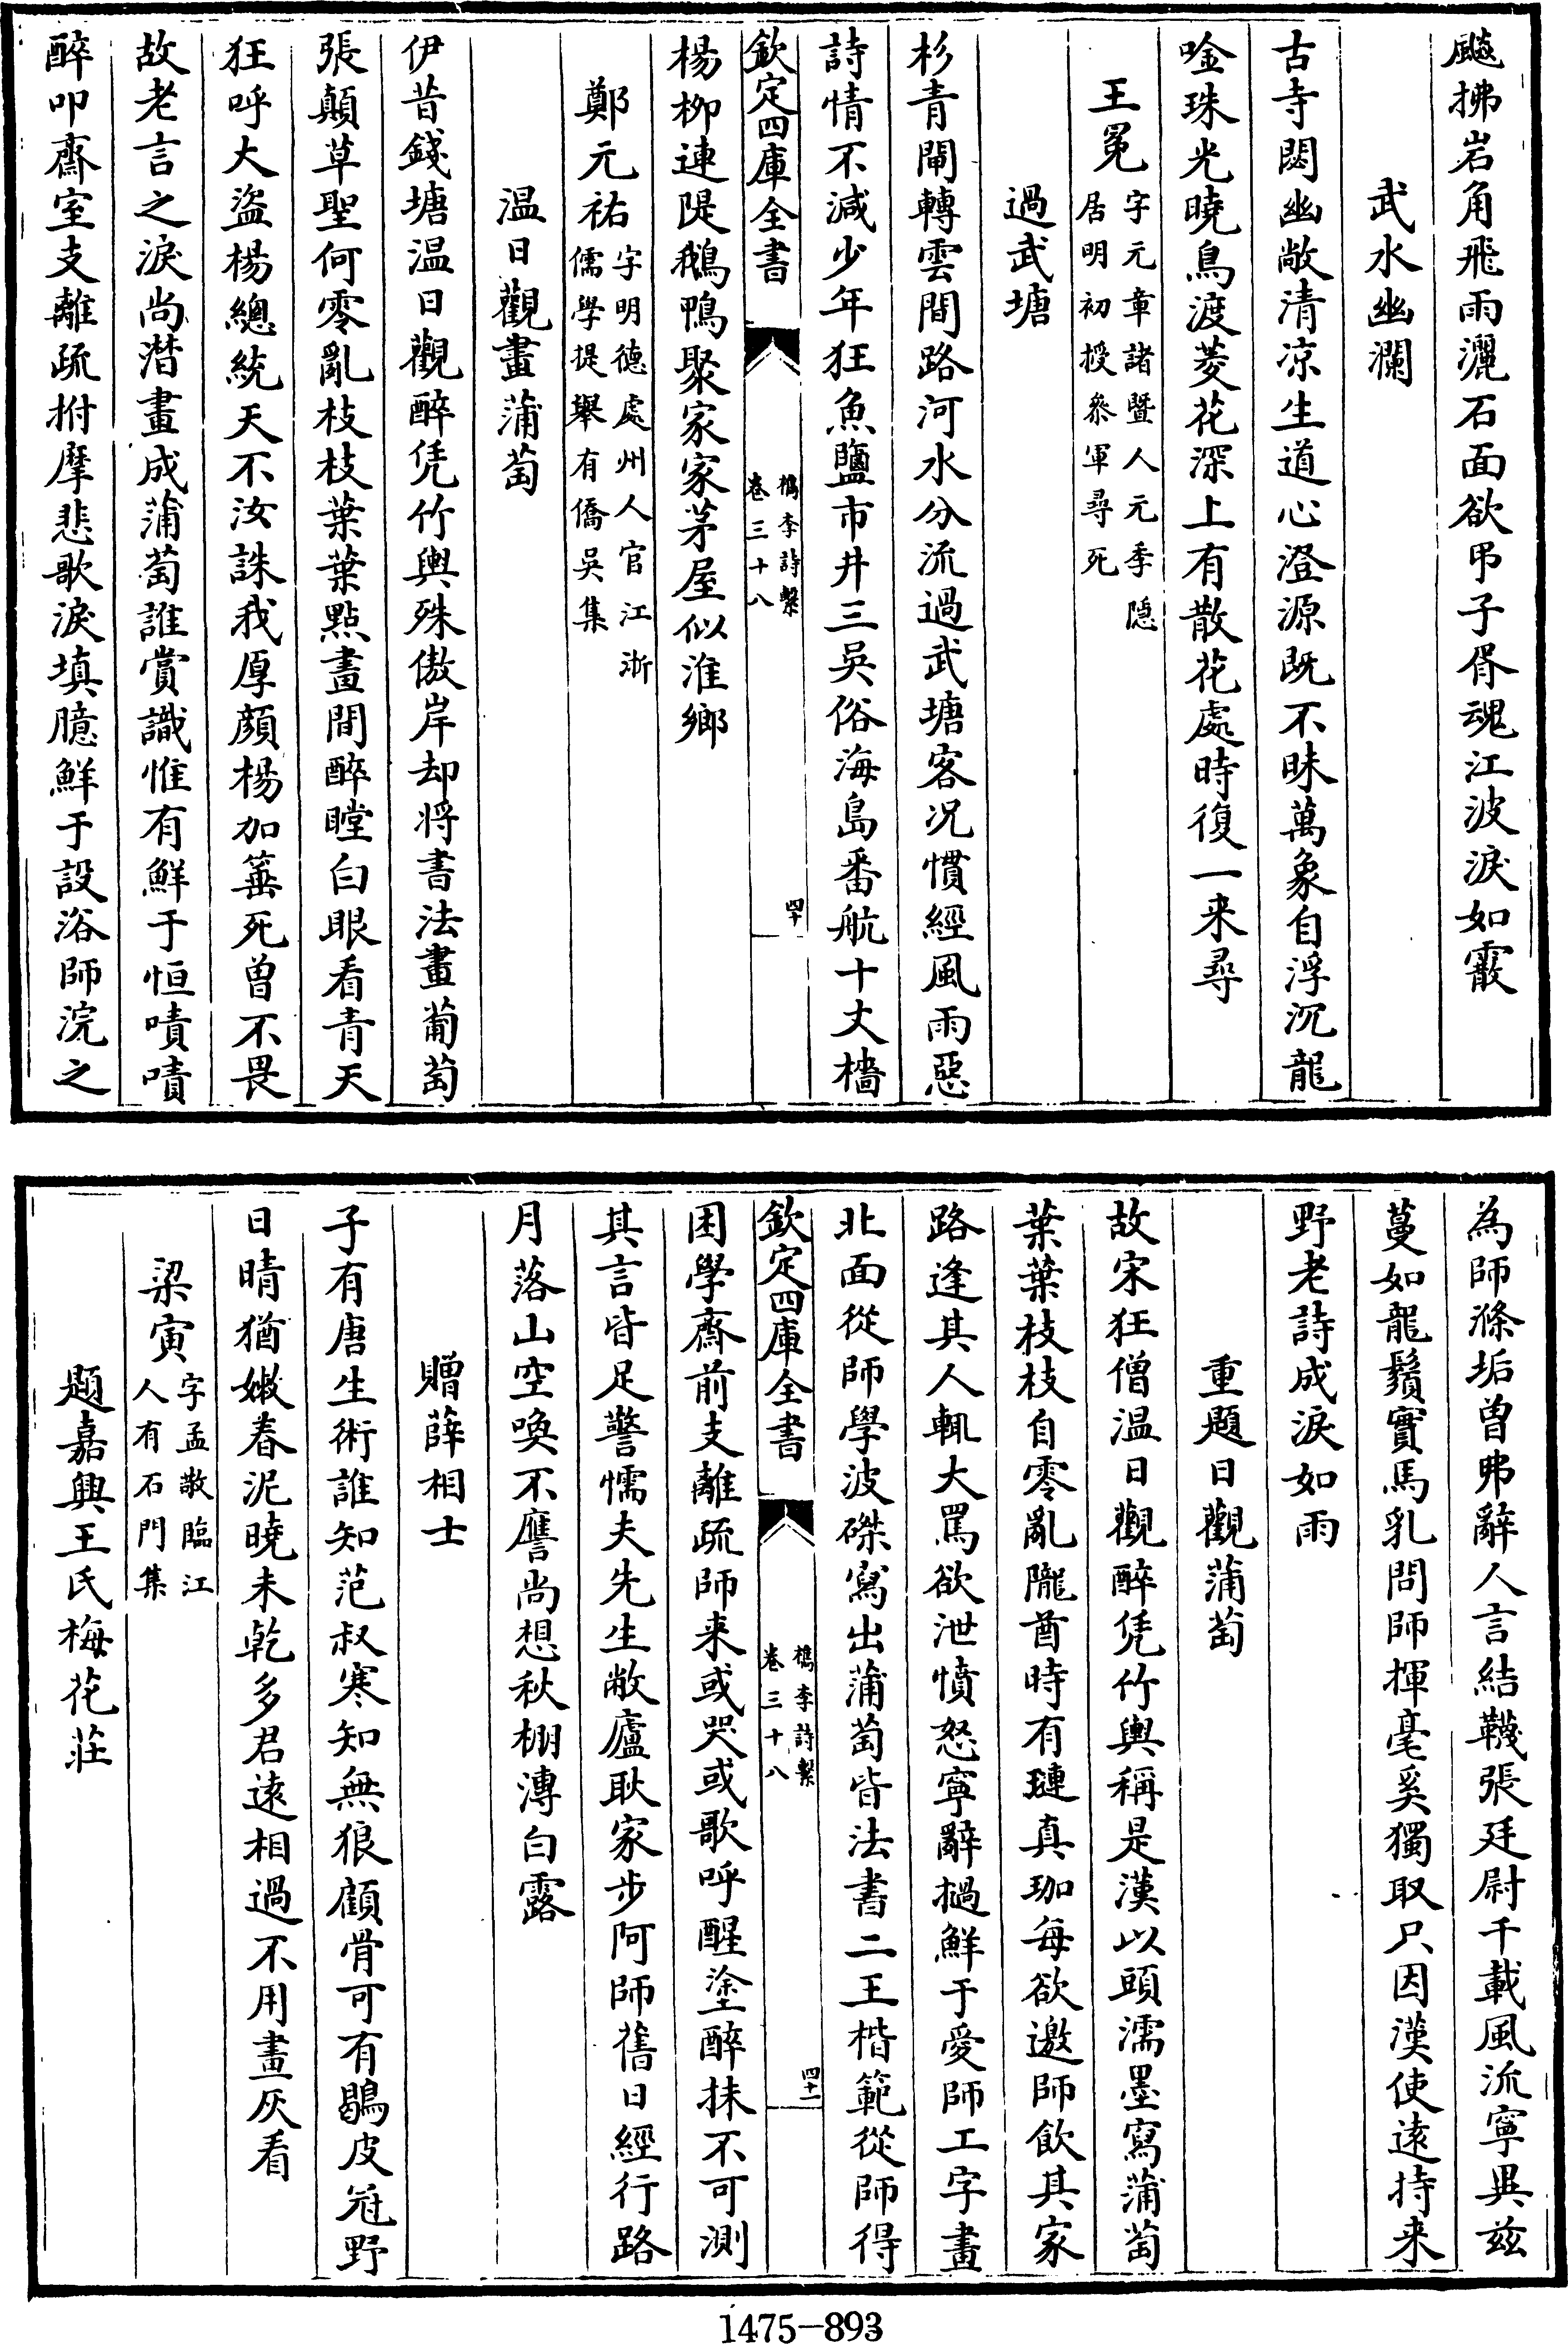 飈拂岩角飛雨灑石面欲弔子胥魂江波淚如霰
武水幽瀾
古寺閟幽敞清凉生道心澄源既不昧萬象自浮沉龍
唫珠光曉鳥渡菱花深上有散花處時復一来尋
王冕字元章諸暨人元季隠居明初授叅軍尋死
過武塘
杉青閘轉雲間路河水分流過武塘客况慣經風雨惡
詩情不減少年狂魚鹽市井三吳俗海島番航十丈檣
欽定四庫全書
檇李詩繫
卷三十八
四十
楊柳連隄鵝鴨聚家家茅屋似淮鄉
鄭元祐字明德處州人官江浙儒學提舉有僑吳集
温日觀畫蒲萄
伊昔錢塘温日觀醉凭竹輿殊傲岸却將書法畫葡萄
張顛草聖何零亂枝枝葉葉點畫間醉瞠白眼看青天
狂呼大盜楊總統天不汝誅我厚顔楊加箠死曽不畏
故老言之淚尚潜畫成蒲萄誰賞識惟有鮮于恒嘖嘖
醉叩齋室支離疏拊摩悲歌淚填臆鮮于設浴師浣之
為師滌垢曽弗辭人言結韈張廷尉千載風流寧異兹
蔓如龍鬚實馬乳問師揮毫奚獨取只因漢使逺持来
野老詩成淚如雨
重題日觀蒲萄
故宋狂僧温日觀醉凭竹輿稱是漢以頭濡墨寫蒲萄
葉葉枝枝自零亂隴酋時有璉真珈每欲邀師飲其家
路逢其人輒大罵欲泄憤怒寧辭撾鮮于愛師工字畫
北面從師學波磔寫出蒲萄皆法書二王楷範從師得
欽定四庫全書
檇李詩繫
卷三十八
四十一
困學齋前支離疏師来或哭或歌呼醒塗醉抹不可測
其言皆足警懦夫先生敝廬耿家步阿師舊日經行路
月落山空喚不譍尚想秋棚漙白露
贈薛相士
子有唐生術誰知范叔寒知無狼顧骨可有鶡皮冠野
日晴猶嫩春泥曉未乾多君逺相過不用畫灰看
梁寅字孟敬臨江人有石門集
題嘉興王氏梅花莊
1475-893